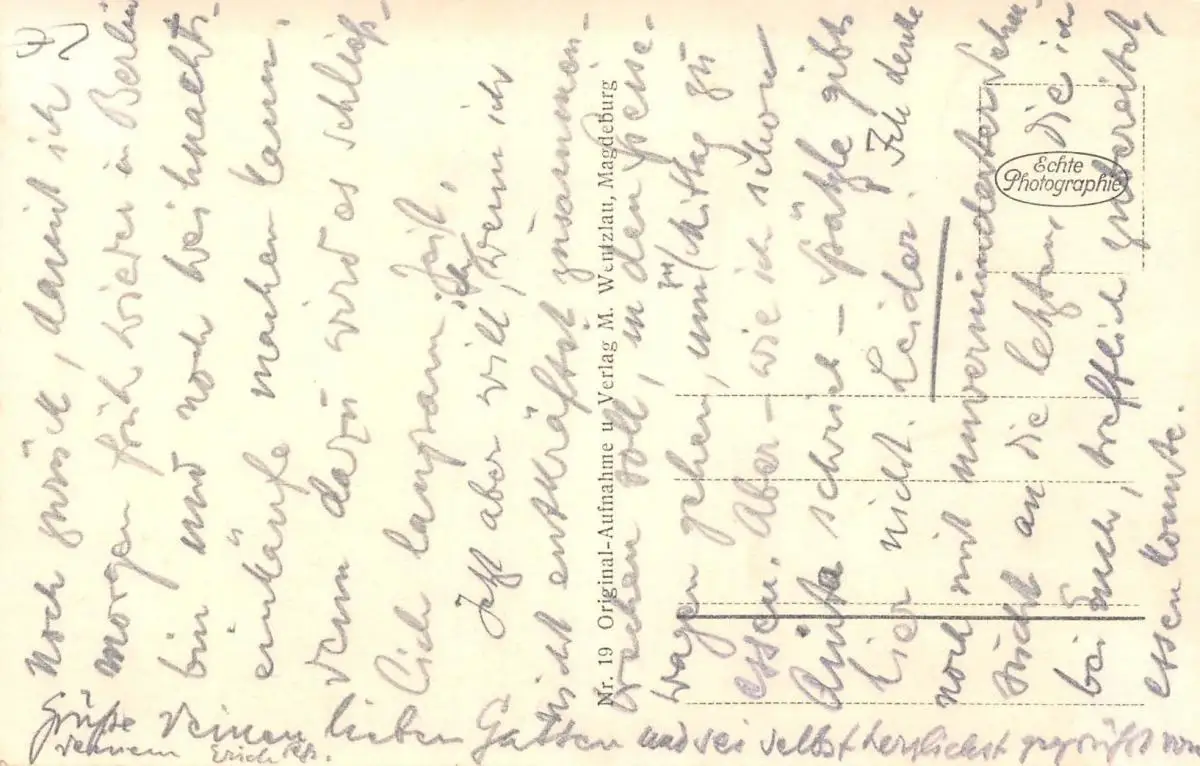 noch zurück, damit ich
morgen früh wieder in Berlin
bin und noch Weihnachts-
einkäufe machen kann.
Denn dazu wird es schließ-
lich langsam Zeit.
Jetzt aber will ich, wenn ich
nicht entkräftet zusammen-
brechen soll, in den Speise-
wagen gehen, um zu Mittag zu
essen. Aber – wie ich schon
Anita schrieb – Spätzle gibts
hier nicht. Leider. Ich denke
noch mit unverminderter Sehn-
sucht an die letzten, die ich
bei Euch, trefflich zubereitet,
essen konnte.
Grüße Deinen lieben Gatten und sei selbst herzlichst gegrüßt von
Deinem Erich
Nr. 19 Original-Aufnahme u. Verlag M. Wentzlau, Magdeburg
Echte
Photographie